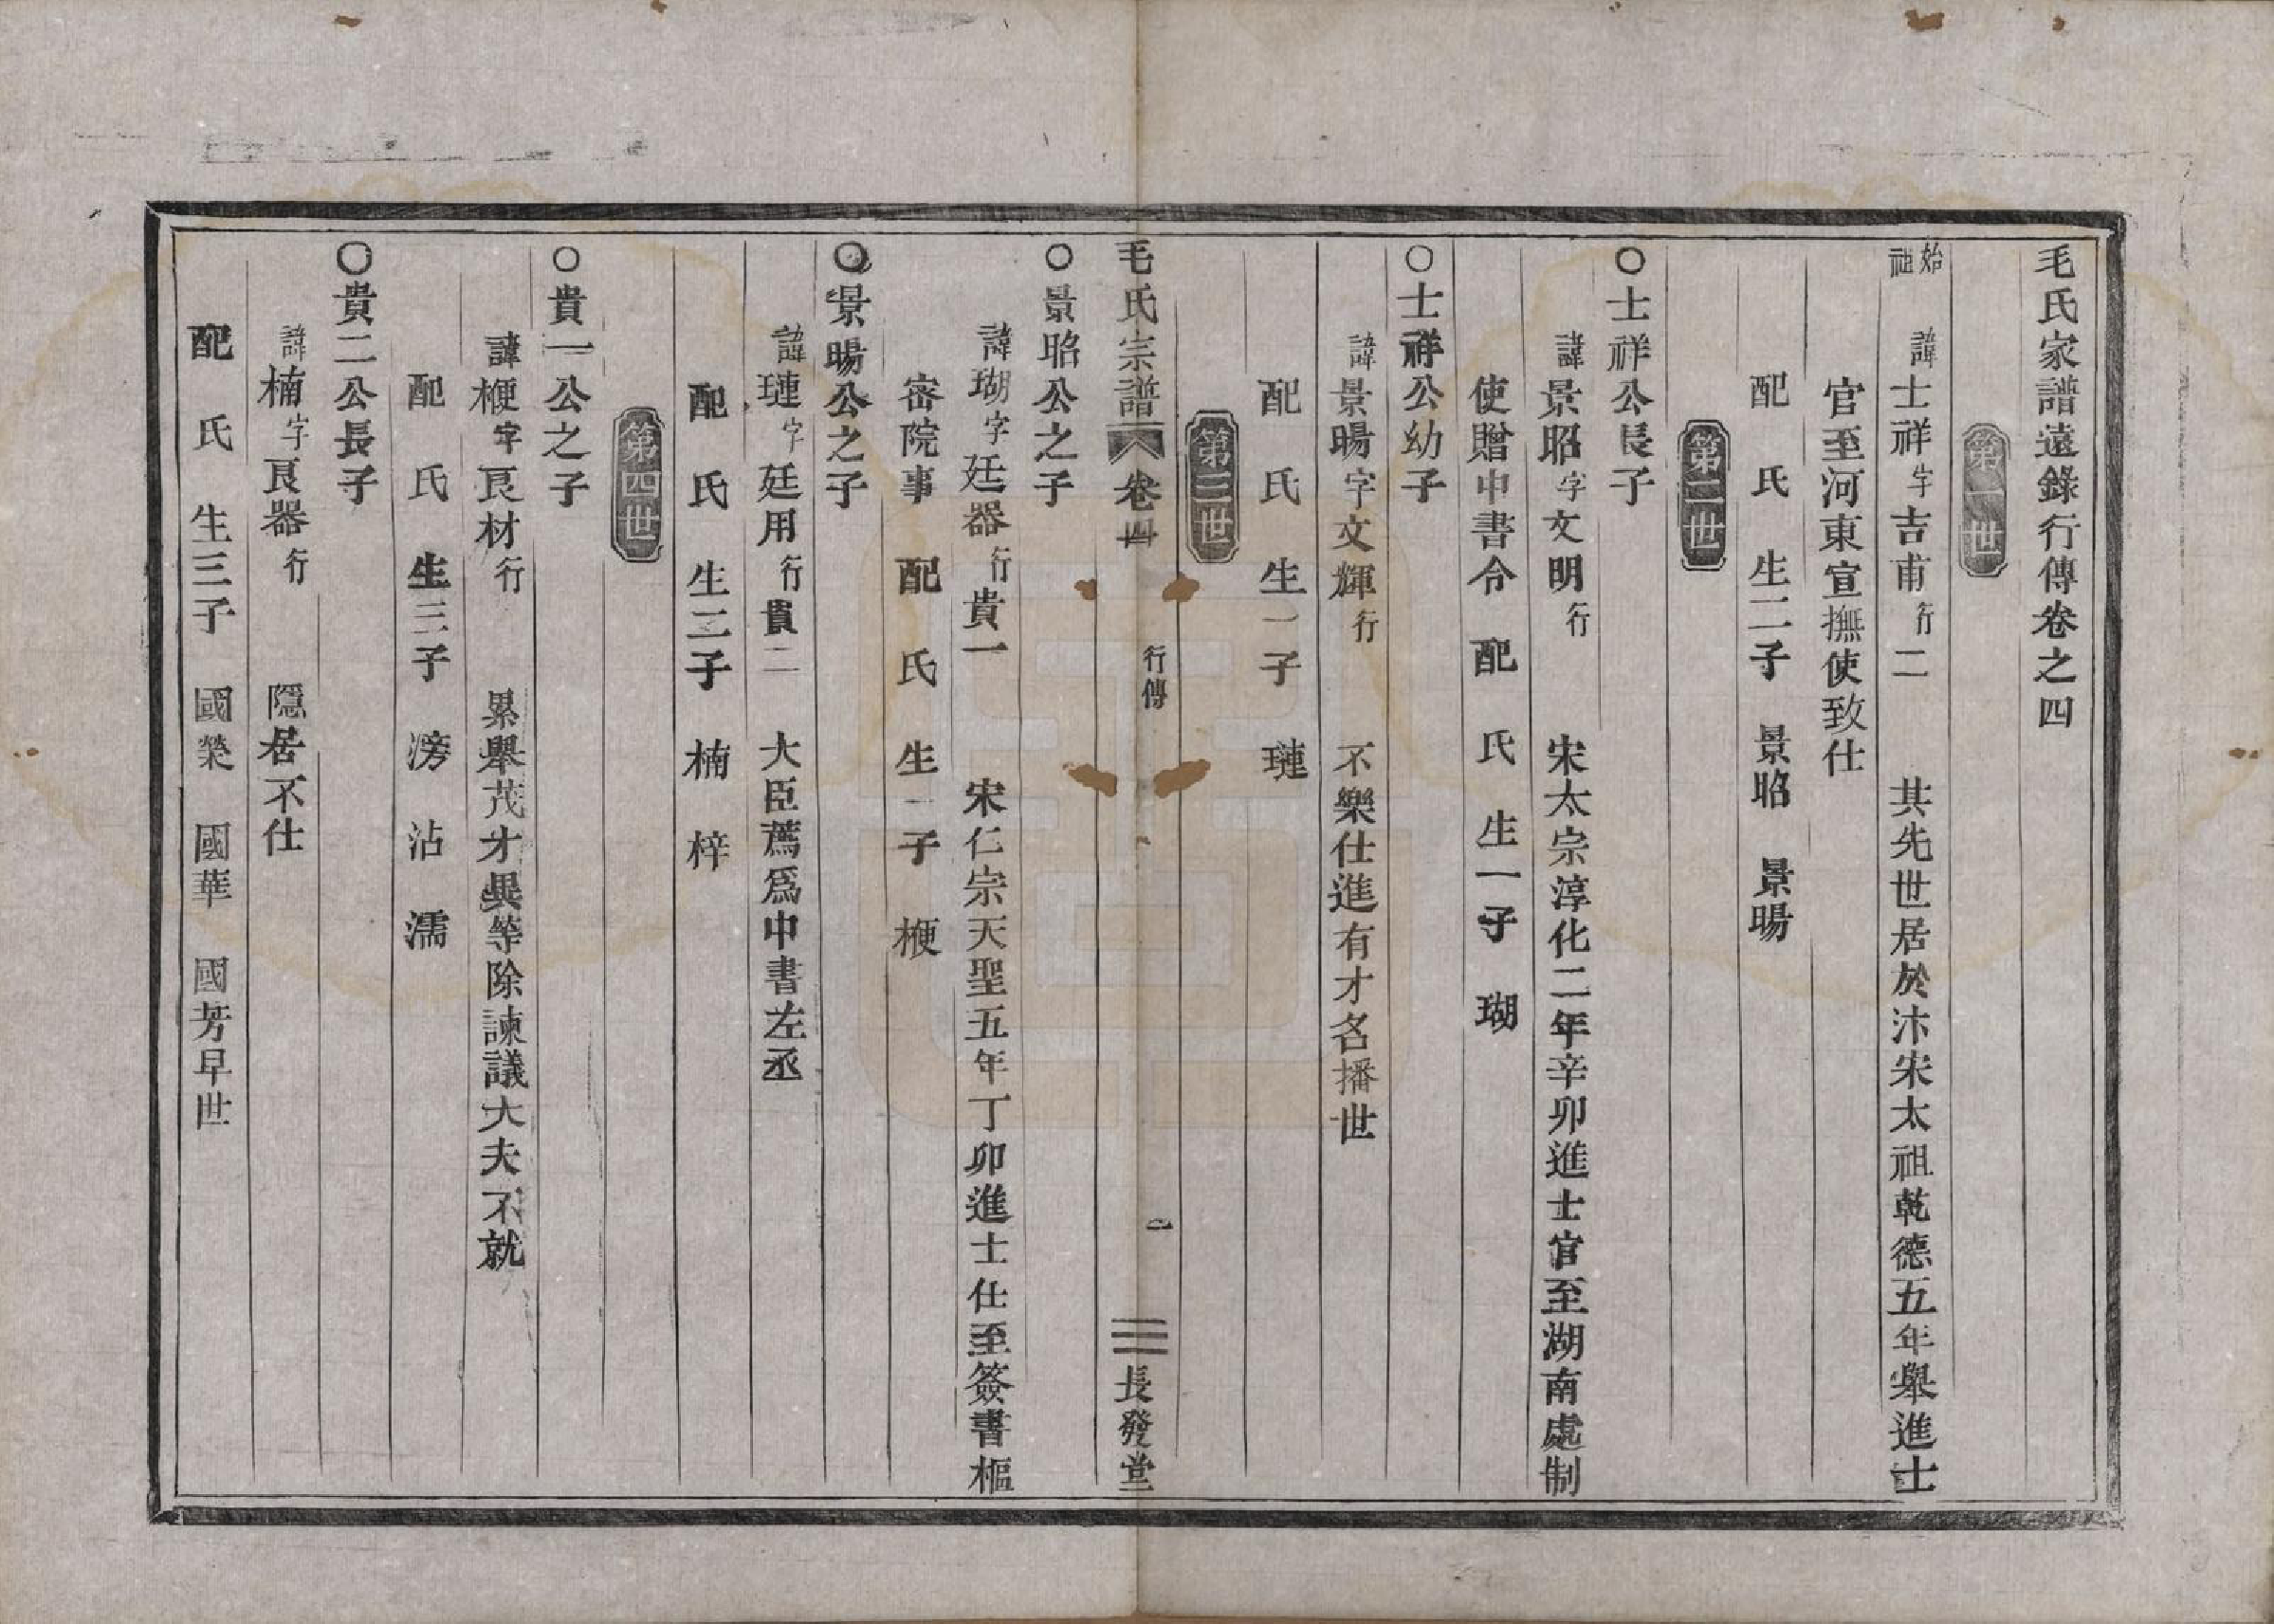 毛氏家譜遠錄行傳卷之四
第一世
始祖 諱士祥字吉甫行二 其先世居於汴宋太祖乾德五年舉進士
官至河東宣撫使致仕
配 氏 生二子 景昭 景暘
第二世
○士祥公長子
諱景昭字文明行 宋太宗淳化二年辛卯進士官至湖南處制
使贈中書令 配 氏 生一子 瑚
○士祥公幼子
諱景暘字文輝行 不樂仕進有才名播世
配 氏 生一子 璉
第三世
毛氏宗譜 卷四 行傳 一 長發堂
○景昭公之子
諱瑚字廷器行貴一 宋仁宗天聖五年丁卯進士仕至簽書樞
密院事 配 氏 生一子 楩
○景暘公之子
諱璉字廷用行貴二 大臣薦爲中書左丞
配 氏 生二子 楠 梓
第四世
○貴一公之子
諱楩字良材行 累舉茂才異等除諫議大夫不就
配 氏 生三子 滂 沾 濡
○貴二公長子
諱楠字良器行 隱居不仕
配 氏 生三子 國榮 國華 國芳早世